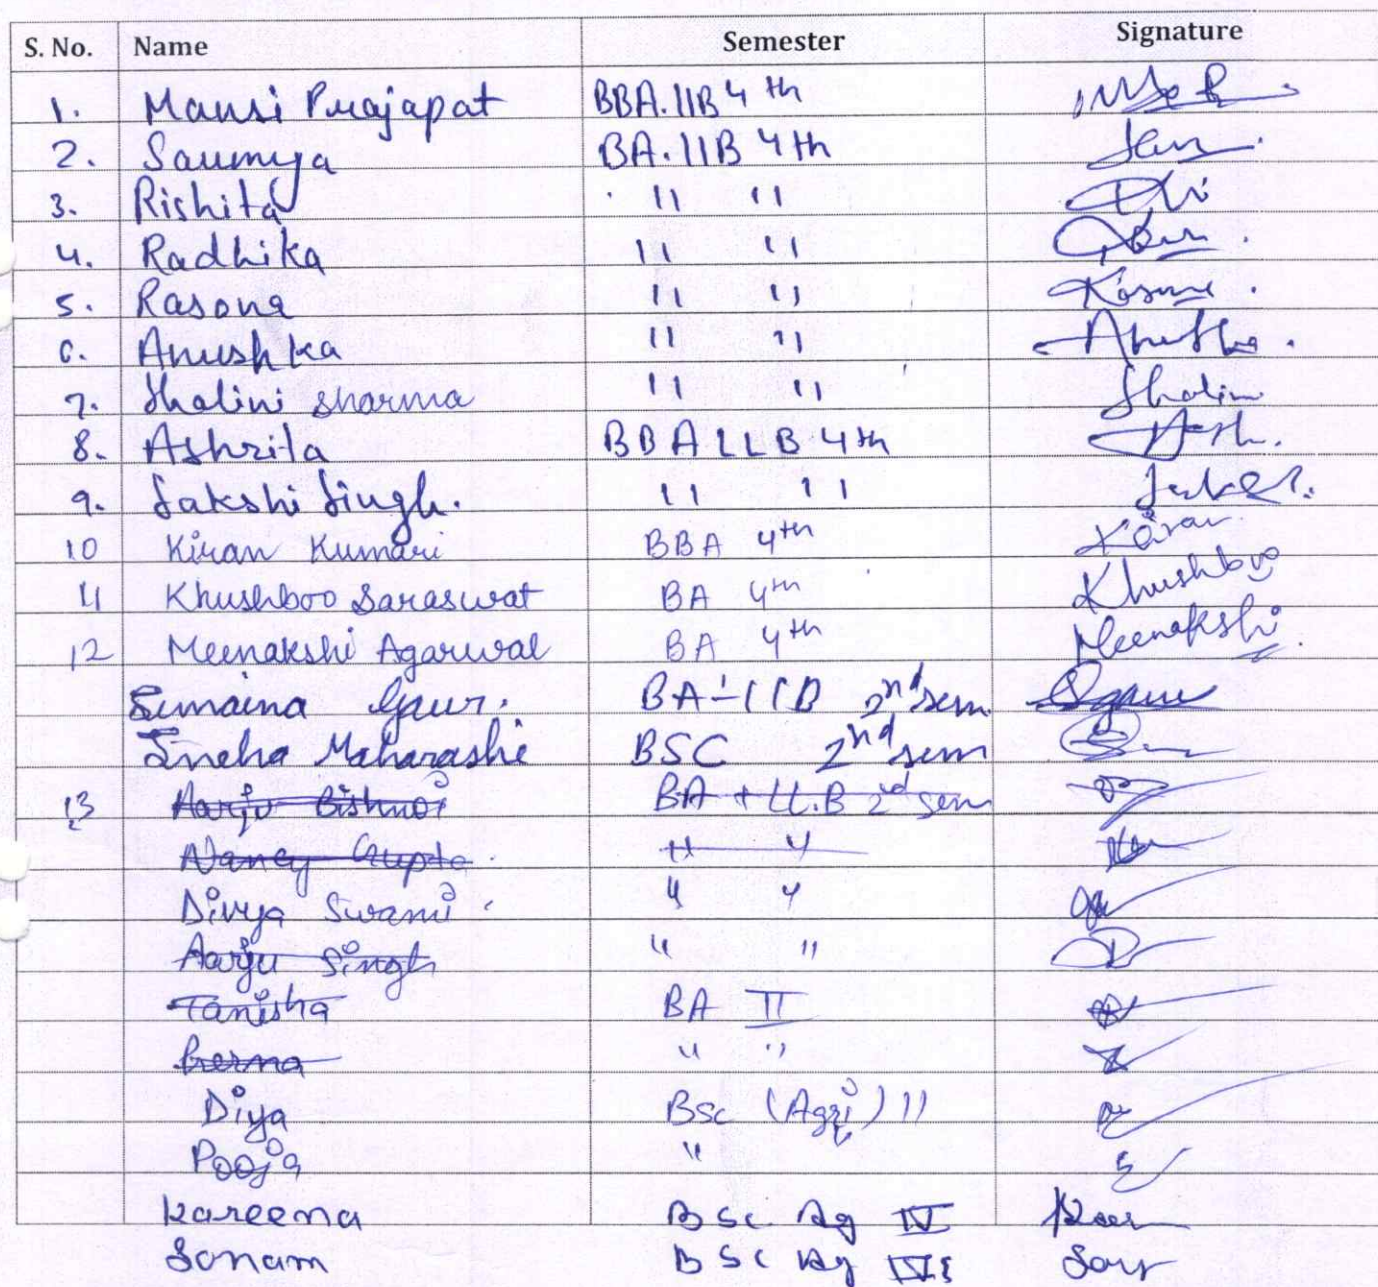 S. No. Name Semester Signature
1. Mansi Prajapat BBA.llB 4th
2. Saumya BA.llB 4th
3. Rishita " "
4. Radhika " "
5. Rasona " "
6. Anushka " "
7. Shalini sharma " " Shalini
8. Ashrita BBA LLB 4th
9. Sakshi Singh. " "
10 Kiran Kumari BBA 4th Kiran
11 Khushboo Saraswat BA 4th Khushboo
12 Meenakshi Agarwal BA 4th Meenakshi
Sumaina Gaur. BA-llB 2nd sem
Sneha Maharashi BSC 2nd sem
13 Aarju Bishnoi BA + LL.B 2nd sem
Nancy Gupta " "
Divya Swami " "
Aarju Singh " "
Tanisha BA II
" "
Diya Bsc (Agri) II
Pooja "
Kareena BSc Ag IV
Sonam BSc Ag